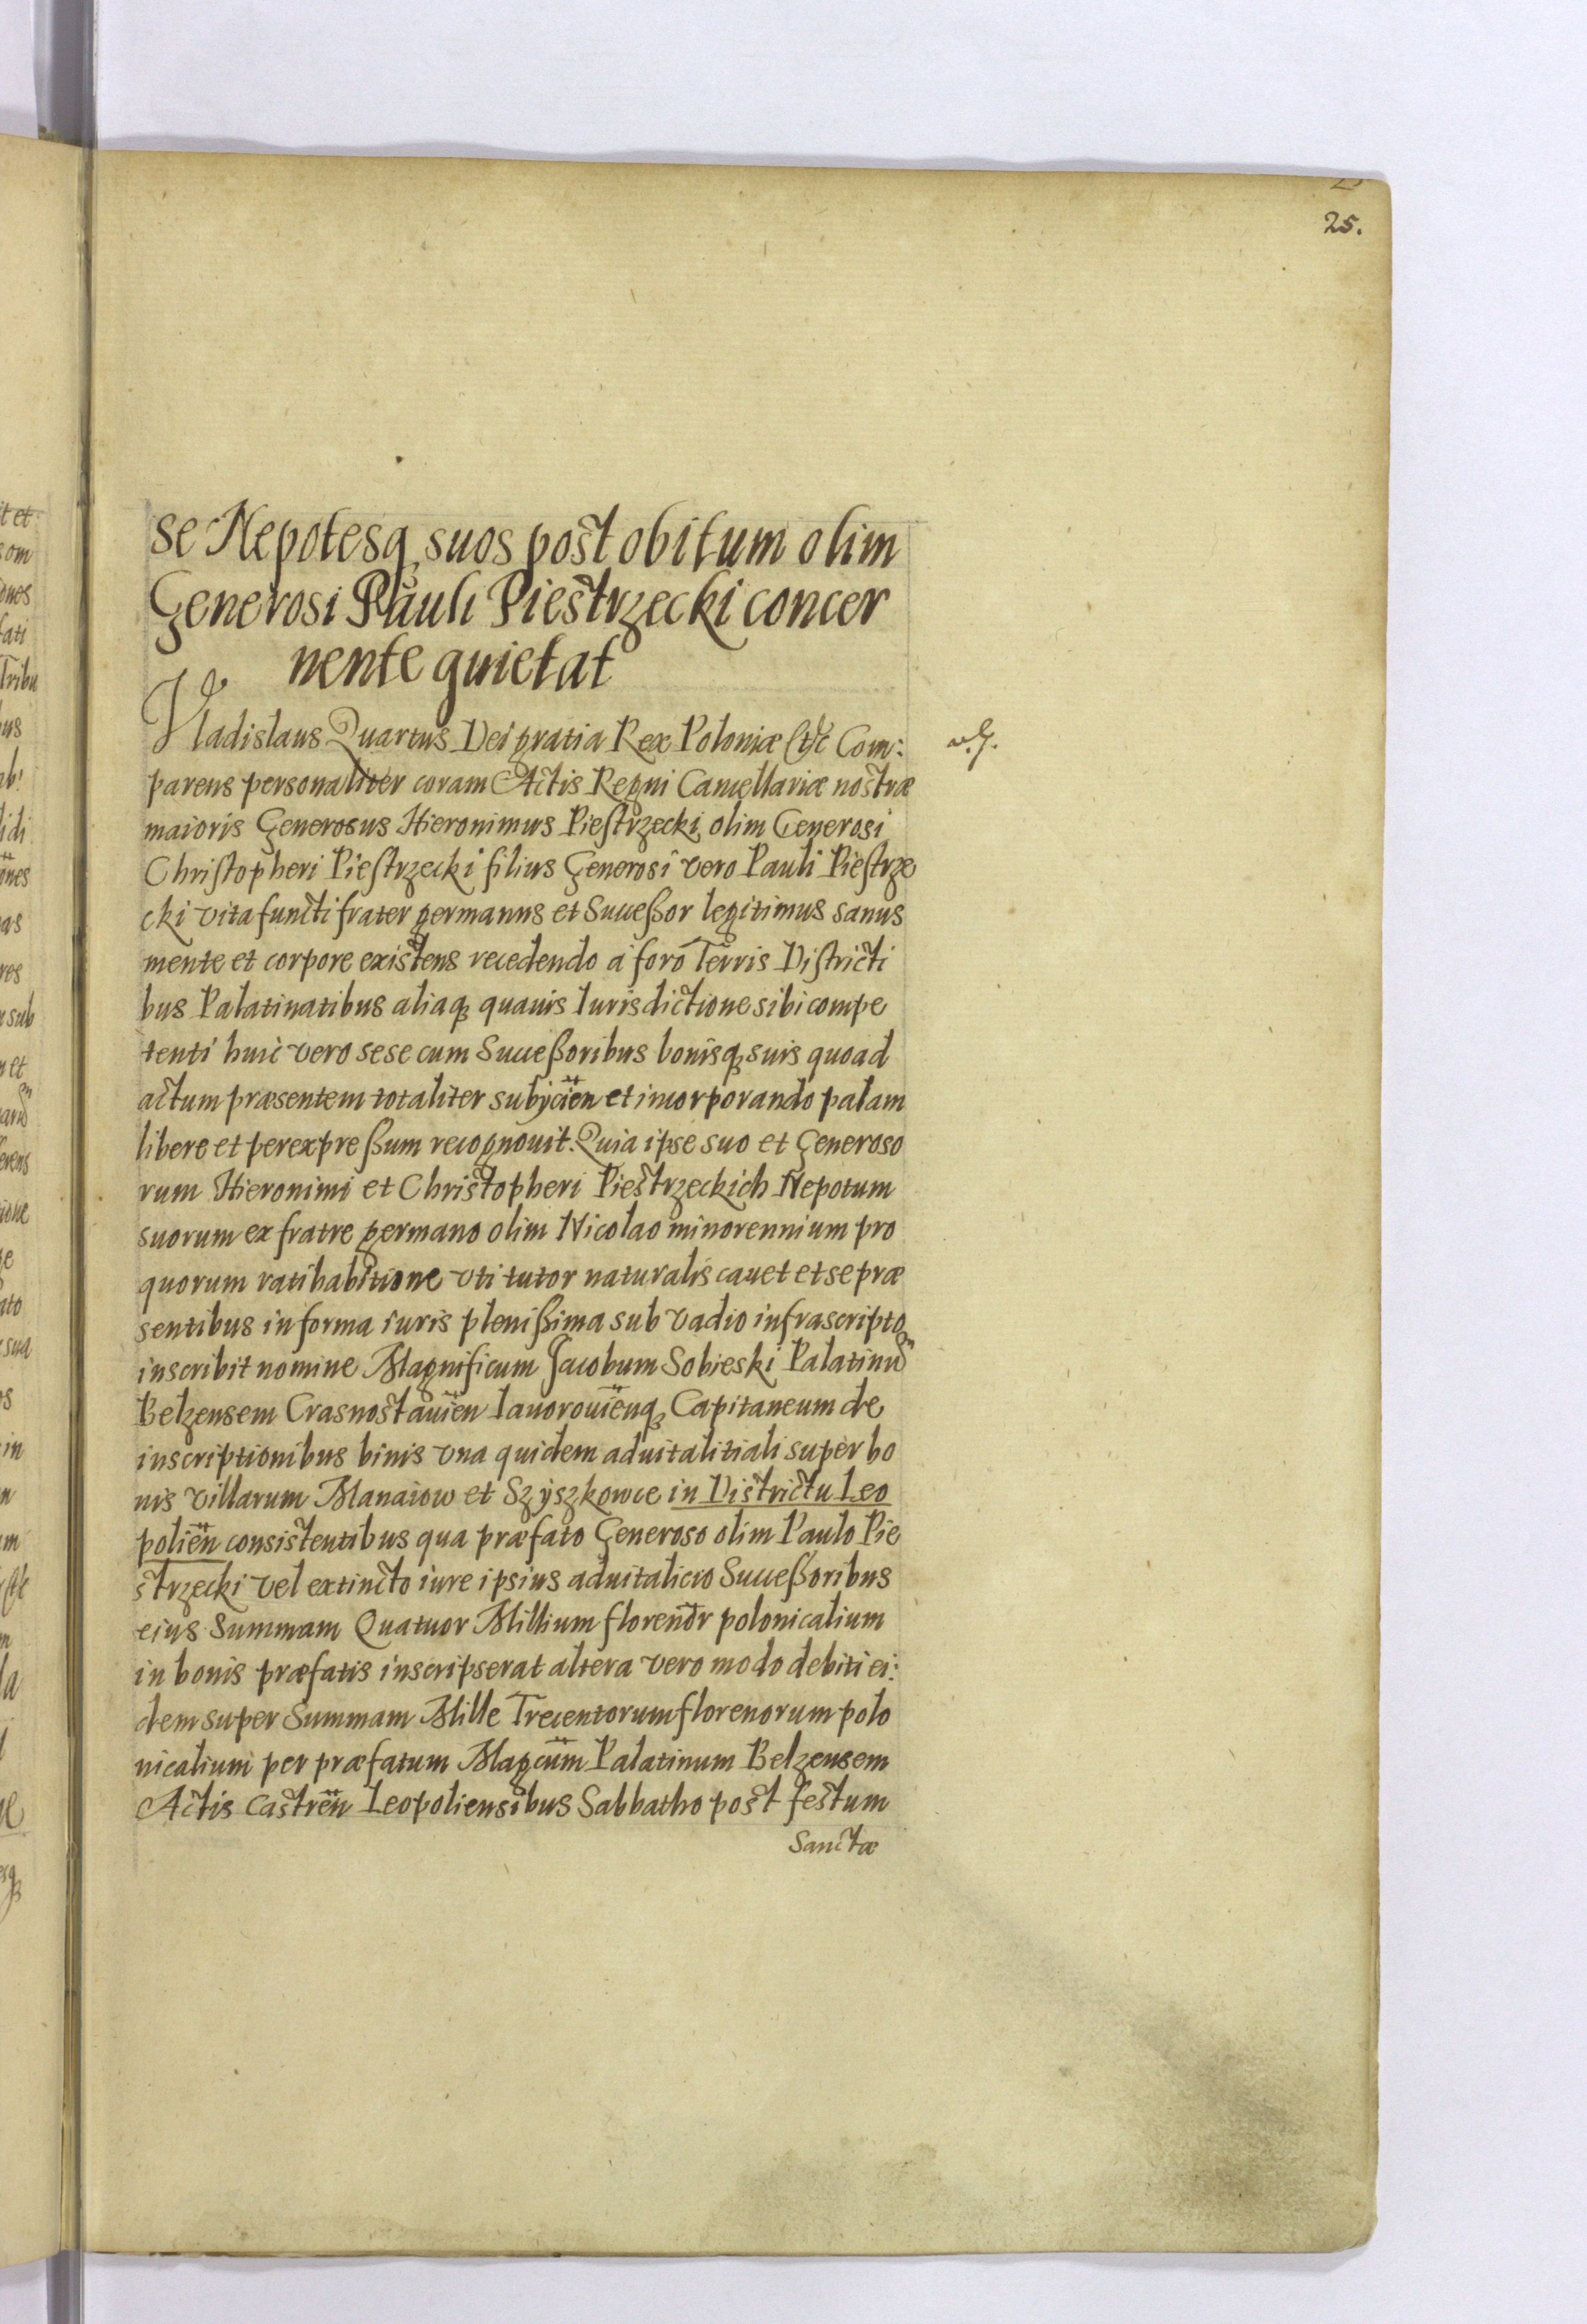 25.
se Nepotesq suos post obitum olim
Generosi Pauli Piestrzecki concer
nente quietat
Vladislaus Quartus Dei gratia Rex Poloniæ &c Com:
parens personaliter coram Actis Regni Cancellariæ nostræ
maioris Generosus Hieronimus Piestrzecki olim Generosi
Christopheri Piestrzecki filius Generosi vero Pauli Piestrze
cki vita functi frater germanus et Succeßor legitimus sanus
mente et corpore existens recedendo a foro Terris Districti
bus Palatinatibus aliaq quauis Iurisdictione sibi compe
tenti huic vero sese cum Succeßoribus bonisq suis quoad
actum præsentem totaliter subijcien et incorporando palam
libere et per expreßum recognouit. Quia ipse suo et Generoso
rum Hieronimi et Christopheri Piestrzeckich Nepotum
suorum ex fratre germano olim Nicolao minorennium pro
quorum ratihabitione vti tutor naturalis cauet et se præ
sentibus in forma iuris plenißima sub vadio infrascripto
inscribit nomine Magnificum Jacobum Sobieski Palatinu
Belzensem Crasnostauien Iauorouienq Capitaneum de
inscriptionibus binis vna quidem aduitalitiali super bo
nis villarum Manaiow et Szyszkowce in Districtu Leo
polien consistentibus qua præfato Generoso olim Paulo Pie
strzecki vel extincto iure ipsius aduitalicio Succeßoribus
eius Summam Quatuor Millium florenor polonicalium
in bonis præfatis inscripserat altera vero modo debiti ei:
dem super Summam Mille Trecentorum florenorum polo
nicalium per præfatum Magcum Palatinum Belzensem
Actis Castren Leopoliensibus Sabbatho post festum
Sanctæ